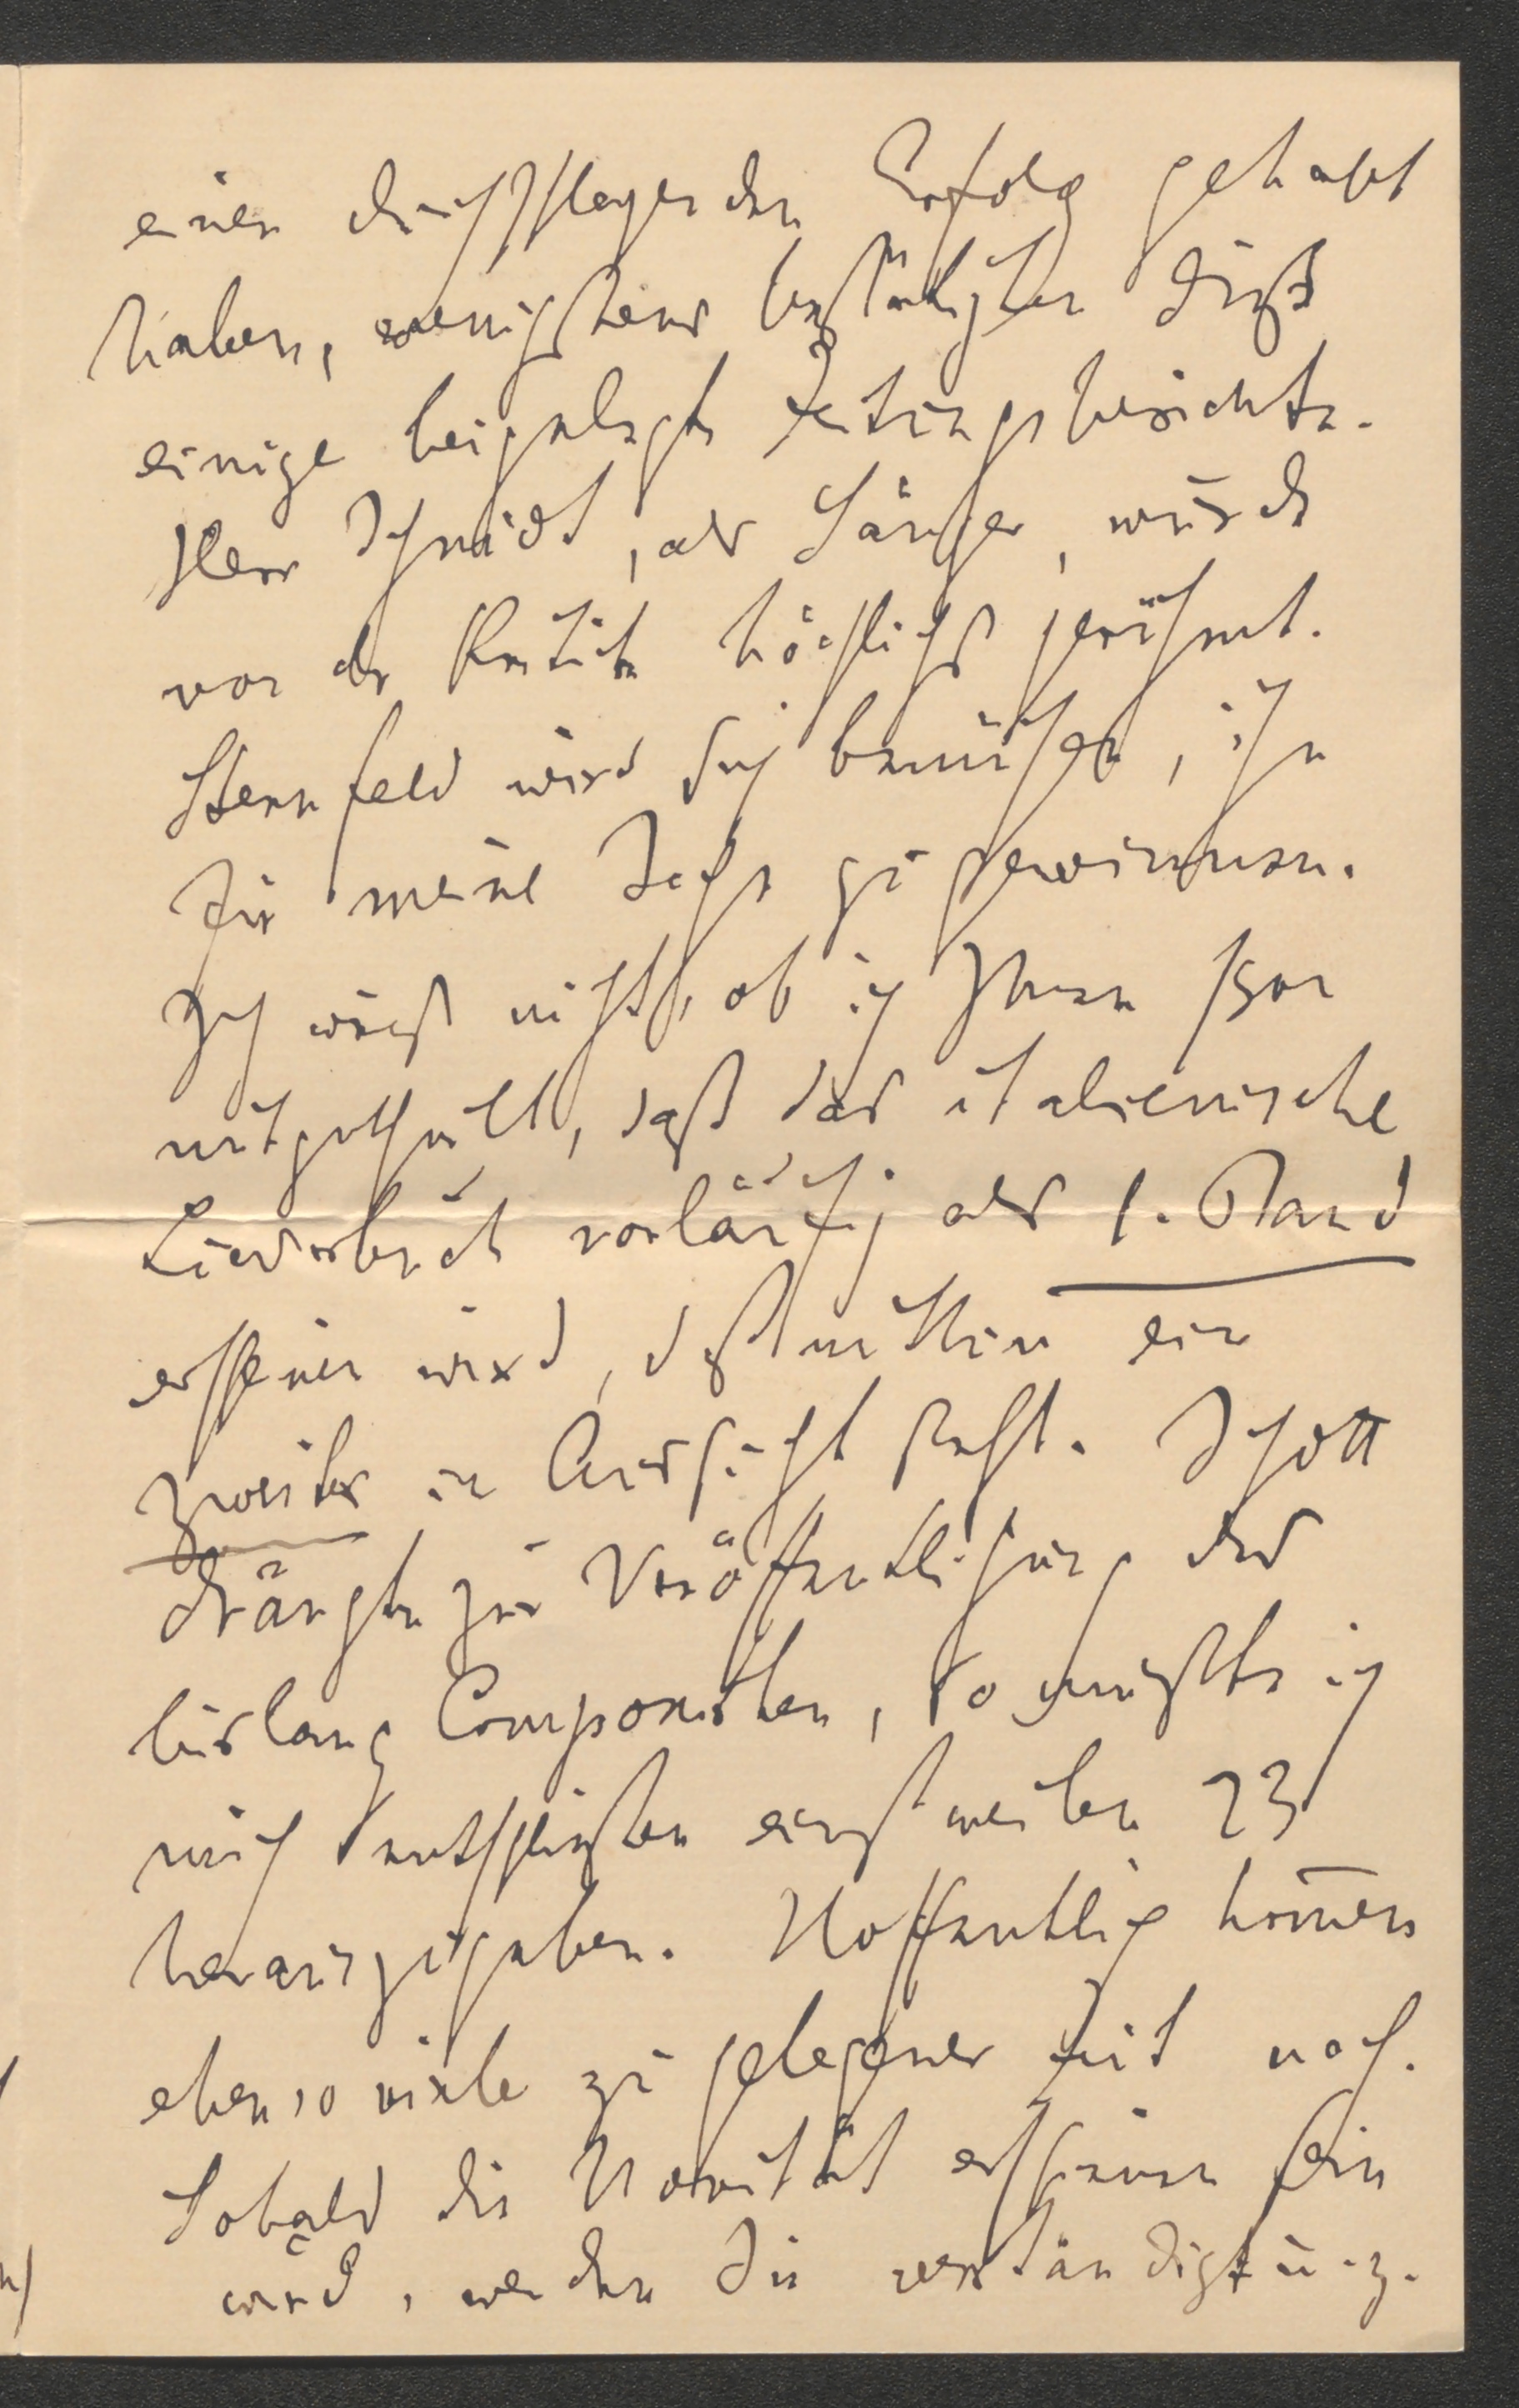 einen durchschlagenden Erfolg gehabt
haben, wenigstens bestätigten dieß
einige beigelegte Zeitungsberichte.
Herr Schmidt, als Sänger, wurde
von der Kritik höchlichst gerühmt.
Sternfeld wird sich bemühen, ihn
für meine Sache zu gewinnen.
Ich weiß nicht, ob ich Ihnen schon
mitgetheilt, daß das italienische
Liederbuch vorläufig als 1. Band
erscheinen wird, deßmithin ein
zweiter in Aussicht steht. Schott
drängte zur Veröffentlichung des
bislang Componirten, so mußte ich
mich entschließen einstweilen 23
herauszugeben. Hoffentlich kom̄en
ebenso viele zu gelegener Zeit nach.
Sobald die Novität erschienen sein
wird, werden Sie verständigt u. z.